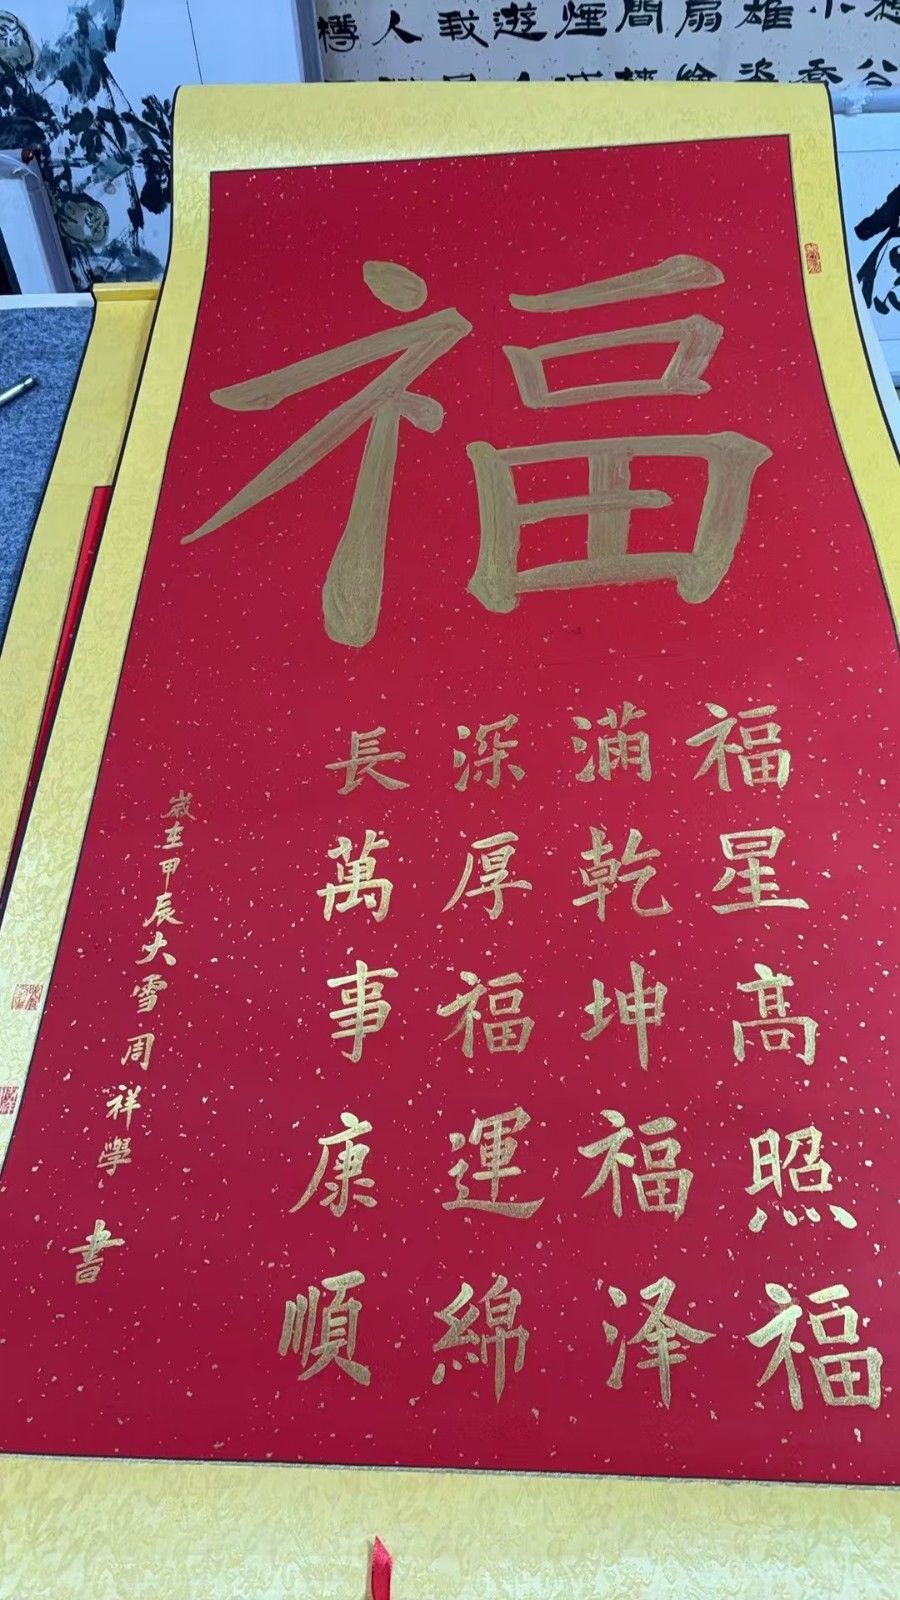 福
福星高照福
滿乾坤福泽
深厚福運綿
長萬事康順
歲在甲辰大雪周祥學書
樽人我遊煙間扇雄